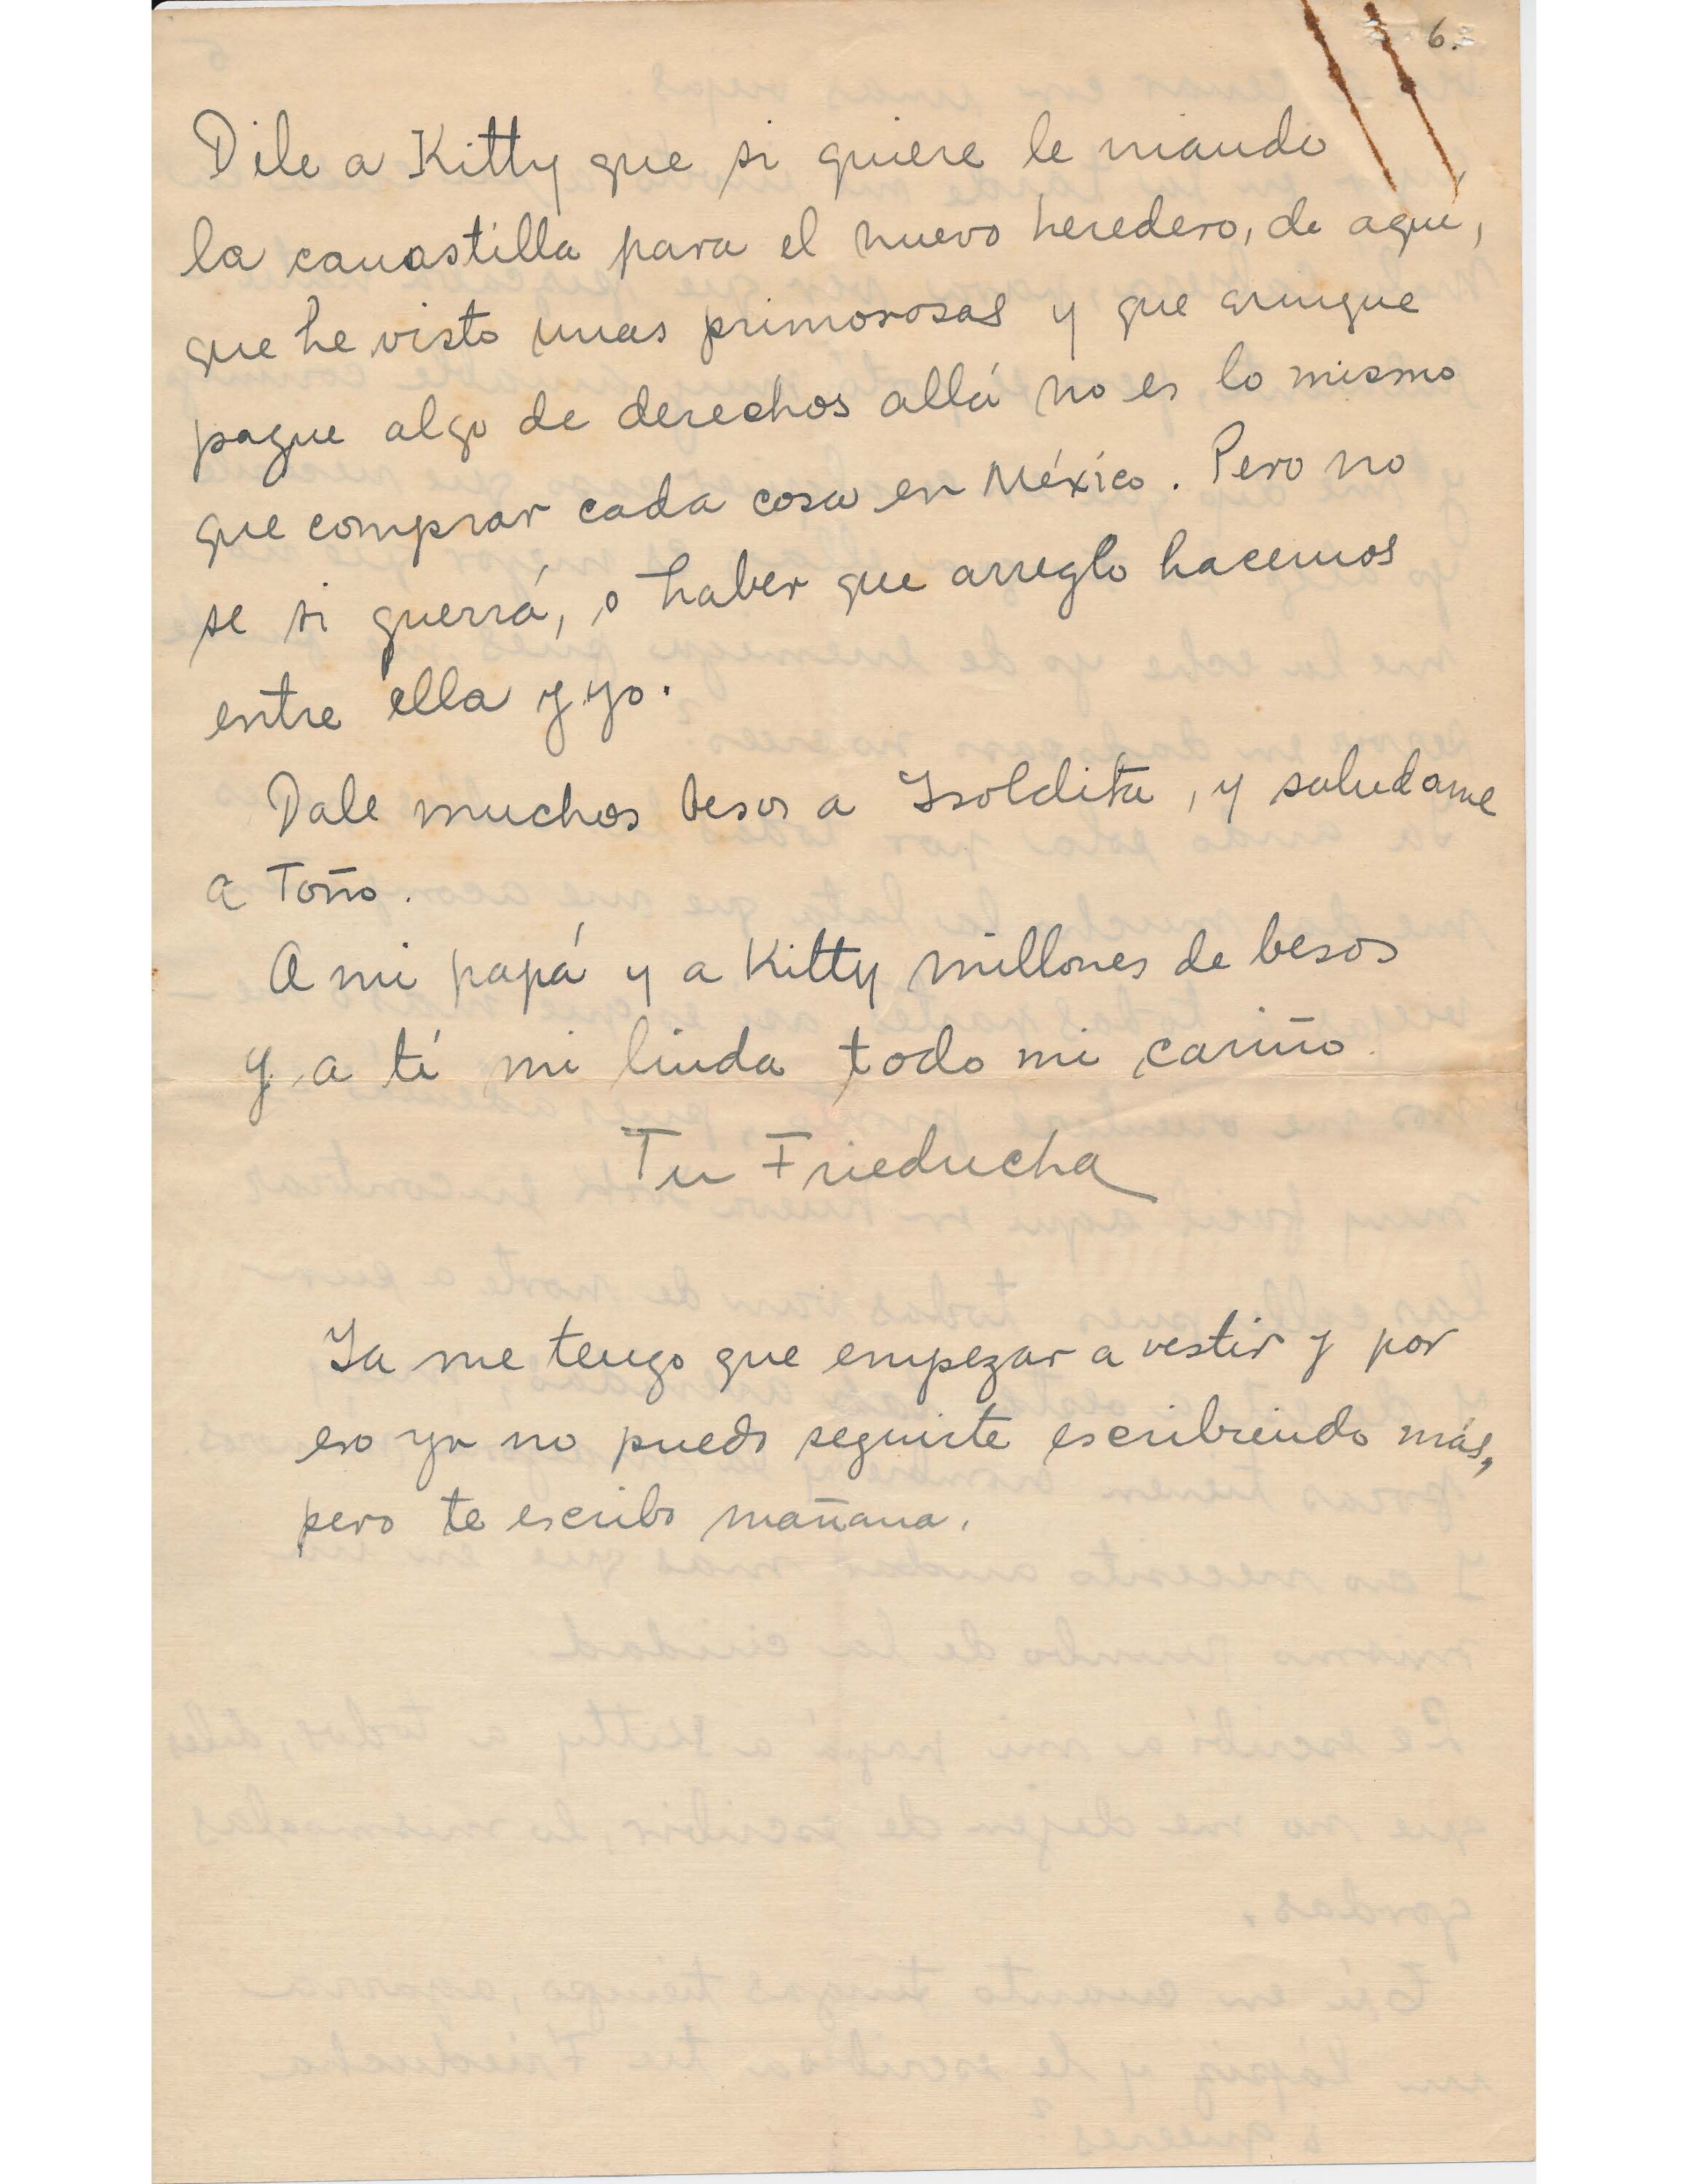 6.
Dile a Kitty que si quiere le mando
la canastilla para el nuevo heredero, de aquí,
que he visto unas primorosas y que aunque
pague algo de derechos allá no es lo mismo
que comprar cada cosa en México. Pero no
se si querrá, o haber que arreglo hacemos
entre ella y yo.
Dale muchos besos a Isoldita, y saludame
a Toño.
A mi papá y a Kitty millones de besos
y a tí mi linda todo mi cariño.
Tu Frieducha
Ya me tengo que empezar a vestir y por
eso ya no puedo seguirte escribiendo más,
pero te escribo mañana.